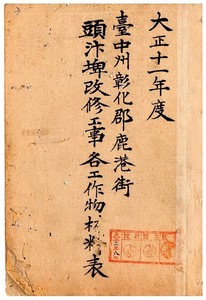 大正十一年度
臺中州彰化郡鹿港街
頭汴埤改修工事各工作物材料表